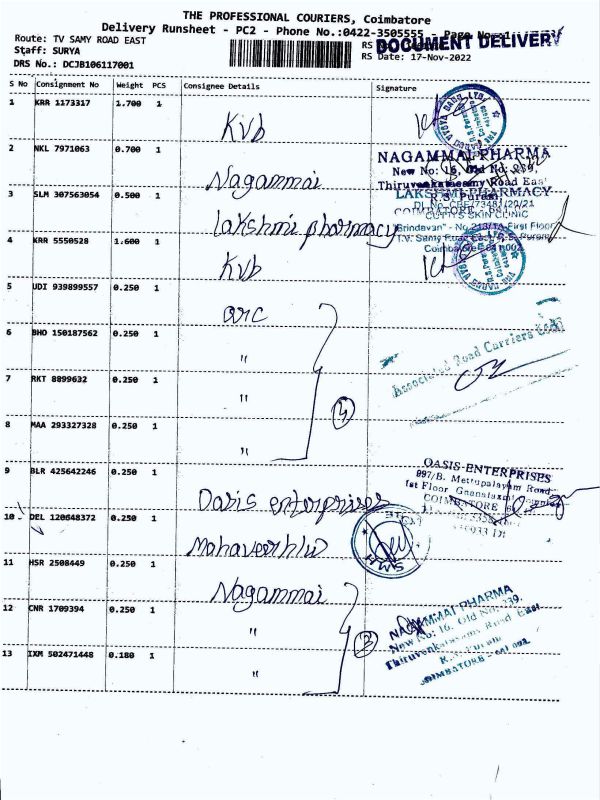 THE PROFESSIONAL COURIERS, Coimbatore
Delivery Runsheet - PC2 - Phone No.:0422-3505555 - Page No.:1
Route: TV SAMY ROAD EAST
RS
DOCUMENT DELIVERY
Staff: SURYA
RS Date: 17-Nov-2022
DRS No.: DCJB106117001
S No Consignment No Weight PCS Consignee Details Signature
1 KRR 1173317 1.700 1 Kvb
2 NKL 7971063 0.700 1 Nagammai
NAGAMMAI PHARMA
New No: 16, Old No: 239,
Thiruvenkatasamy Road East
R.S. Puram,
3 SLM 307563054 0.500 1 lakshmi pharmacy
LAKSHMI PHARMACY
DL No. CBE/73481/20/21
COIMBATORE
CUTTYS SKIN CLINIC
"Brindavan" - No.213/1A First Floor
T.V. Samy Road East, R.S. Puram
Coimbatore - 641 002
4 KRR 5550528 1.600 1 Kvb
5 UDI 939899557 0.250 1 arc
6 BHO 150187562 0.250 1 "
Associated Road Carriers
7 RKT 8899632 0.250 1 "
4
8 MAA 293327328 0.250 1 "
9 BLR 425642246 0.250 1 Oasis enterprises
OASIS ENTERPRISES
997/B. Mettupalayam Road
1st Floor
COIMBATORE
10 DEL 120648372 0.250 1
11 HSR 2508449 0.250 1 Nagammai
12 CNR 1709394 0.250 1 "
3
NAGAMMAI PHARMA
New No: 16, Old No: 239,
Thiruvenkatasamy Road East
R.S. Puram
COIMBATORE - 641 002.
13 IXM 502471448 0.180 1 "